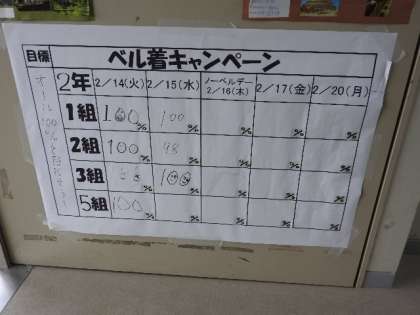 目標 ベル着キャンペーン
オール100%を目指そう!
2年 2/14(火) 2/15(水) ノーベルデー 2/16(木) 2/17(金) 2/20(月)
1組 100% 100% % % %
2組 100% 98% % % %
3組 % 100% % % %
5組 100% % % % %